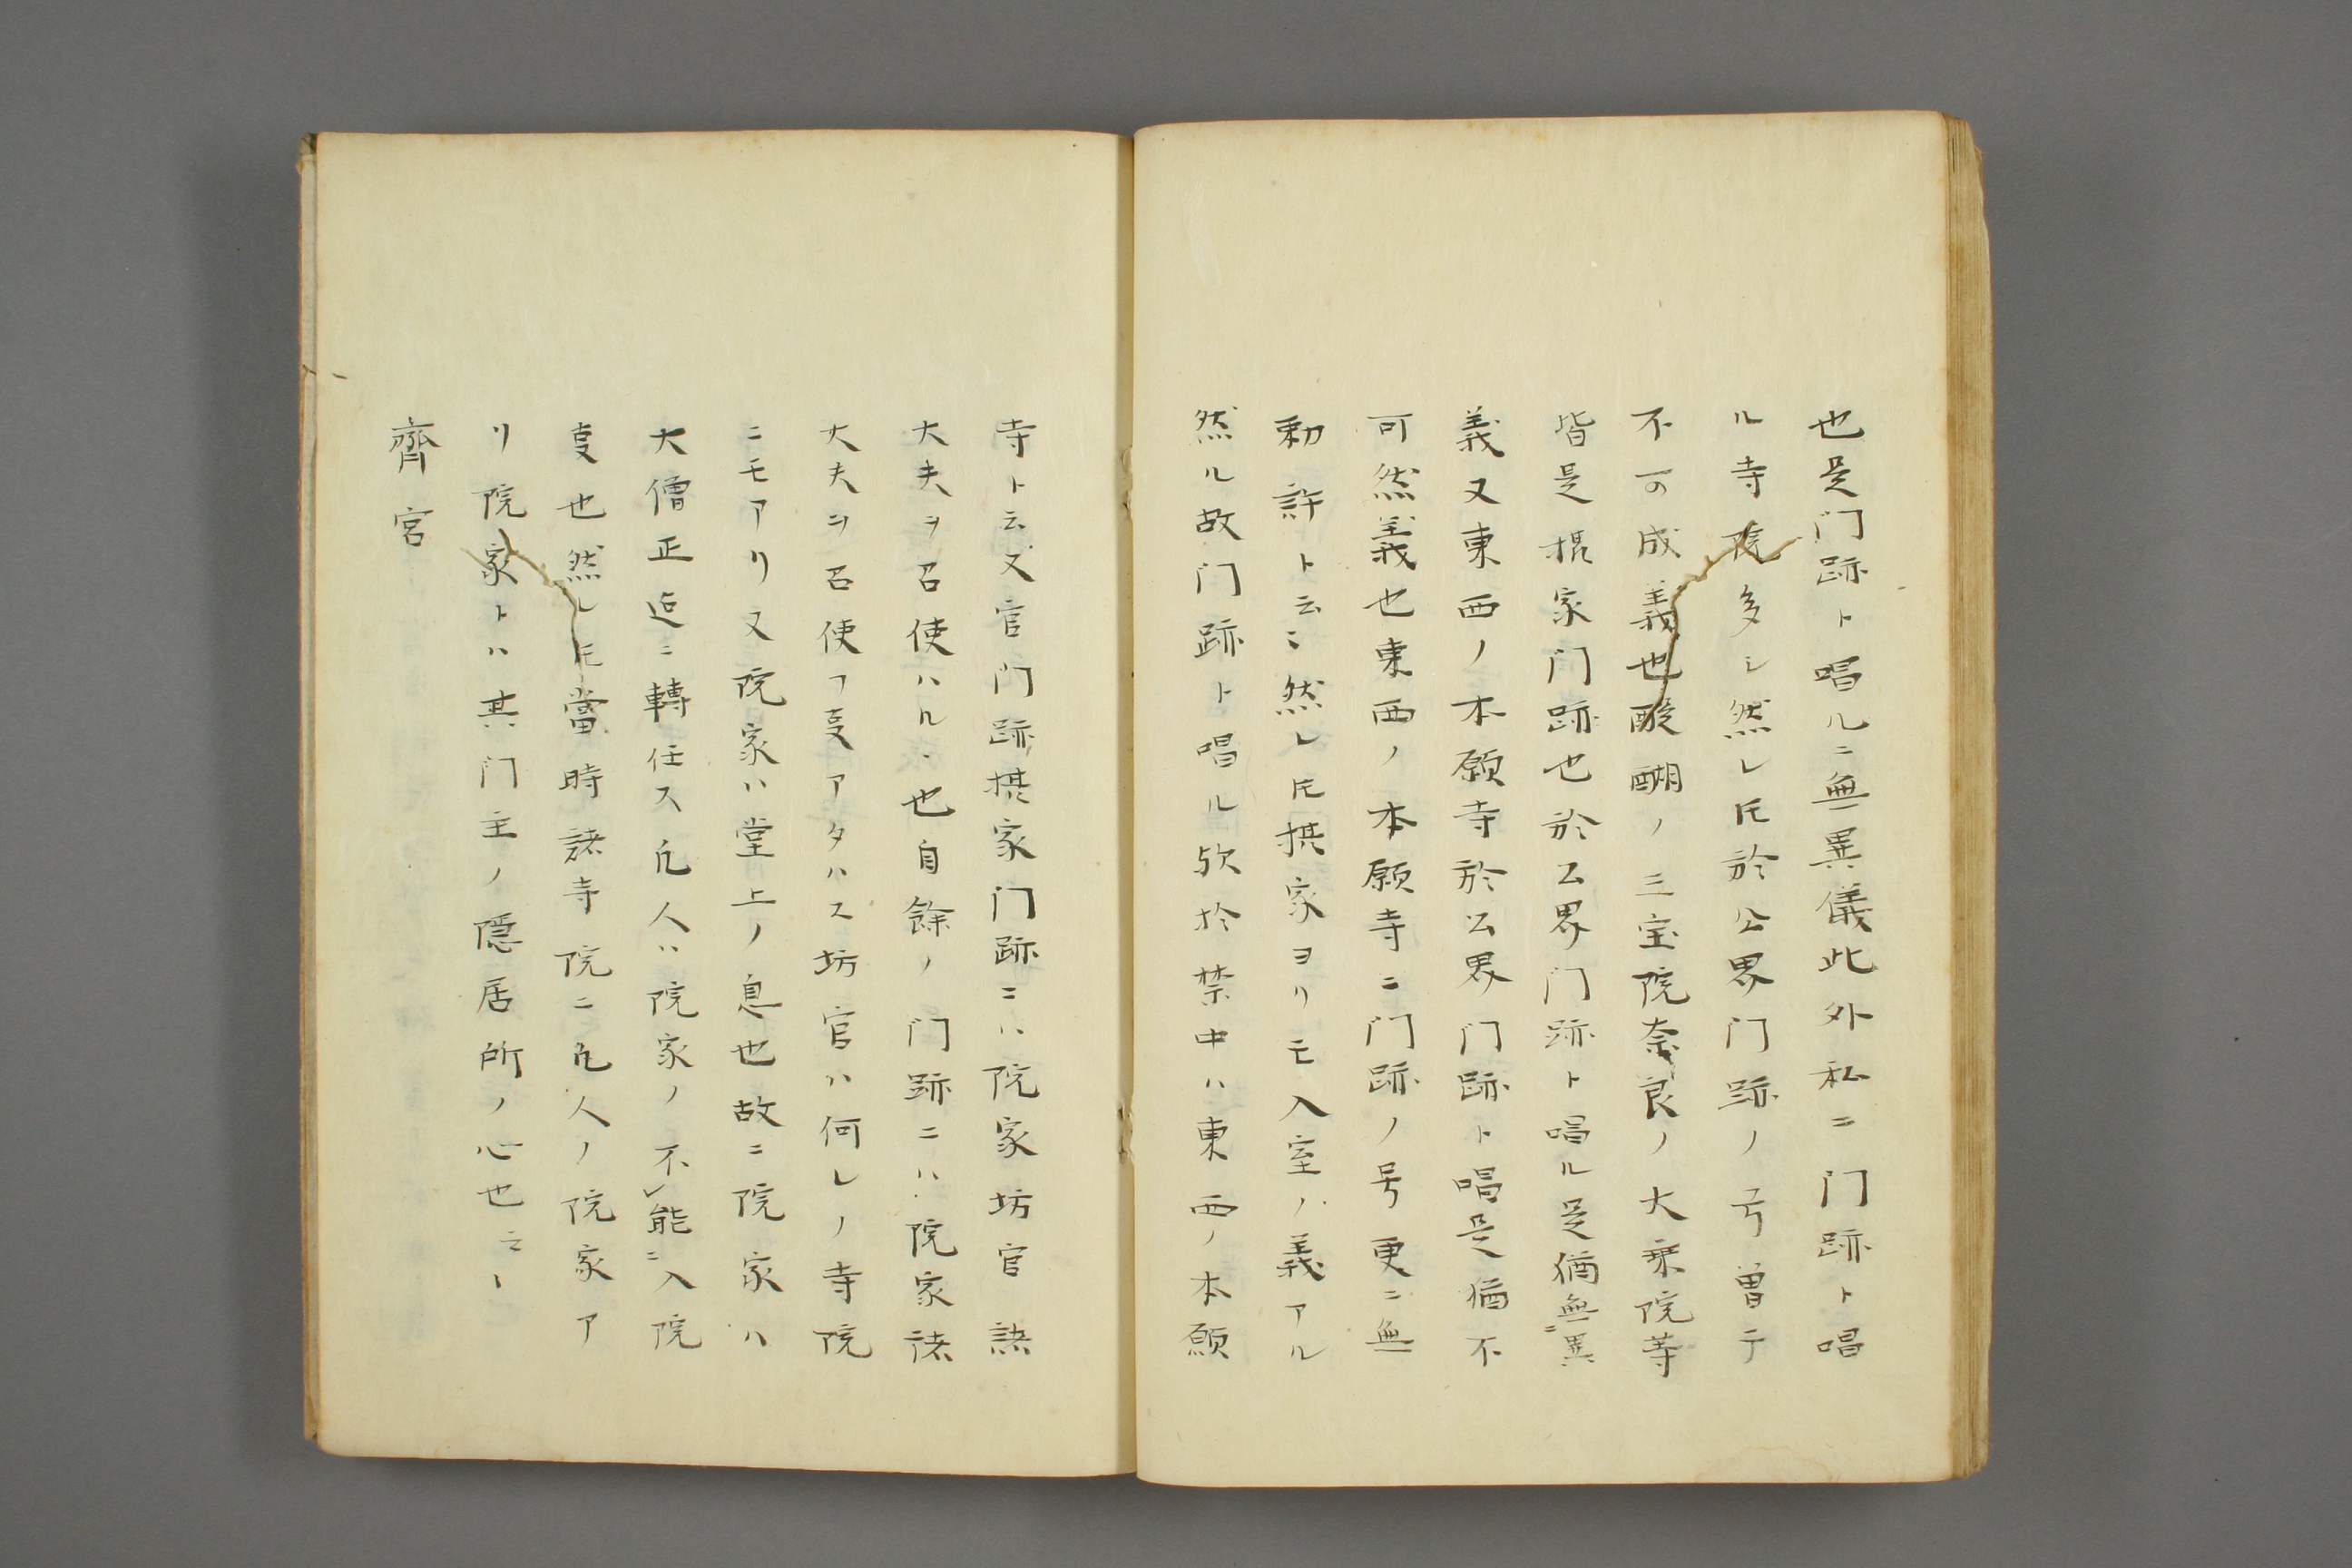 也是门跡ト唱ルニ無異儀此外私ニ门跡ト唱
ル寺院多シ然レ𪜈於公界门跡ノ号曽テ
不可成義也醍醐ノ三宝院奈良ノ大乗院等
皆是摂家门跡也於公界门跡ト唱ル是猶無ニ異
義又東西ノ本願寺於公界门跡ト唱是猶不
可然義也東西ノ本願寺ニ门跡ノ号更ニ無
勅許ト云ニ然レ𪜈摂家ヨリモ入室ノ義アル
然ル故门跡ト唱ル欤於禁中ハ東西ノ本願
寺ト云又宦门跡摂家门跡ニハ院家坊官諸
大夫ヲ召使ハルヽ也自餘ノ门跡ニハ院家諸
大夫ヲ召使フ叓アタハス坊官ハ何レノ寺院
ニモアリ又院家ハ堂上ノ息也故ニ院家ハ
大僧正迄ニ轉任ス凡人ハ院家ノ不レ能ニ入院
叓也然レ𪜈當時諸寺院ニ凡人ノ院家ア
リ院家トハ其门主ノ隠居所ノ心也云〻
齊宮